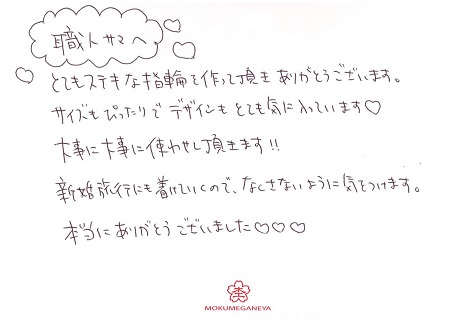 職人サマへ
とてもステキな指輪を作って頂き ありがとうございます。
サイズも ぴったりで デザインも とても気に入っています♡
大事に大事に使わせて頂きます!!
新婚旅行にも着けていくので、なくさないように気をつけます。
本当に ありがとう ございました♡♡♡
MOKUMEGANEYA